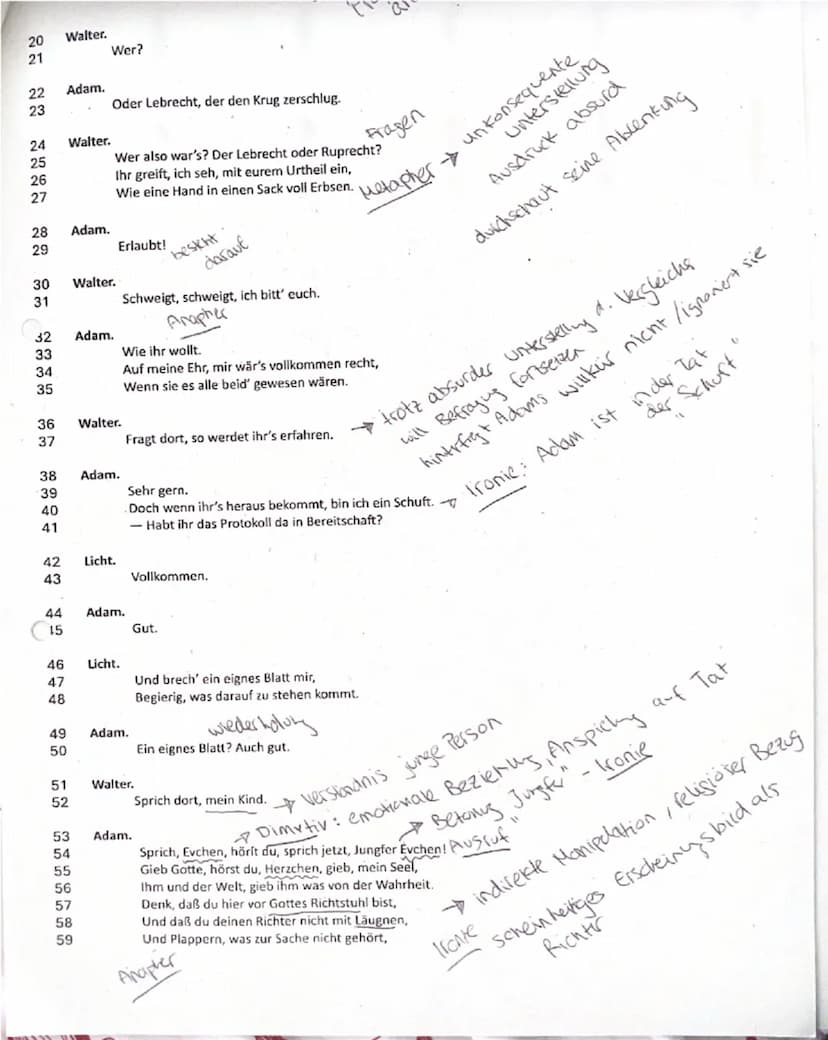 20 Walter.
21 Wer?
22 Adam.
23 Oder Lebrecht, der den Krug zerschlug.
24 Walter.
Fragen
25 Wer also war's? Der Lebrecht oder Ruprecht?
26 Ihr greift, ich seh, mit eurem Urtheil ein,
27 Wie eine Hand in einen Sack voll Erbsen.
Metapher → unkonsequente
Unterstellung
Ausdruck absurd
durchschaut seine Ablenkung
28 Adam.
29 Erlaubt!
besteht
darauf
30 Walter.
31 Schweigt, schweigt, ich bitt' euch.
Anapher
32 Adam.
33 Wie ihr wollt.
34 Auf meine Ehr, mir wär's vollkommen recht,
35 Wenn sie es alle beid' gewesen wären.
36 Walter.
37 Fragt dort, so werdet ihr's erfahren.
→ trotz absurder Unterstellung d. Vergleichs
will Befragung fortsetzen
hintrfragt Adams willkür nicht / ignoriert sie
38 Adam.
39 Sehr gern.
40 Doch wenn ihr's heraus bekommt, bin ich ein Schuft.
→ Ironie: Adam ist in der Tat
der "Schuft"
41 — Habt ihr das Protokoll da in Bereitschaft?
42 Licht.
43 Vollkommen.
44 Adam.
15 Gut.
46 Licht.
47 Und brech' ein eignes Blatt mir,
48 Begierig, was darauf zu stehen kommt.
49 Adam.
wiederholung
50 Ein eignes Blatt? Auch gut.
51 Walter.
52 Sprich dort, mein Kind.
→ Verständnis junge Person
53 Adam.
→ Dimutiv: emotionale Beziehung, Anspielung auf Tat
→ Betonung "Jungfer" - Ironie
54 Sprich, Evchen, hörſt du, sprich jetzt, Jungfer Evchen!
Ausruf
55 Gieb Gotte, hörst du, Herzchen, gieb, mein Seel,
56 Ihm und der Welt, gieb ihm was von der Wahrheit.
57 Denk, daß du hier vor Gottes Richtstuhl bist,
→ indirekte Manipulation, religiöser Bezug
58 Und daß du deinen Richter nicht mit Läugnen,
59 Und Plappern, was zur Sache nicht gehört,
Ironie scheinheiliges Erscheinungsbild als
Richter
Anapher